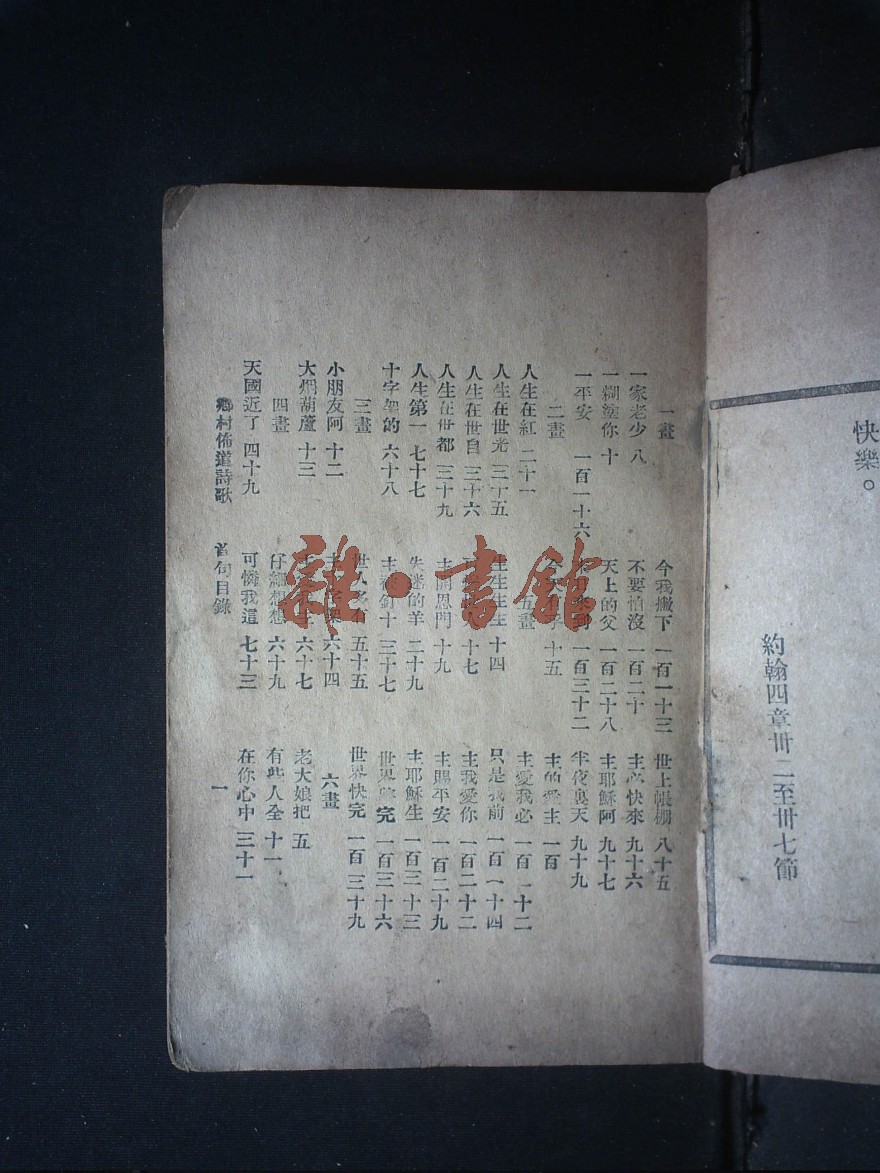 快樂。
約翰四章卅二至卅七節
一畫
一家老少 八
一糊塗你 十
一平安 一百一十六
二畫
人生在紅 二十一
人生在世光 三十五
人生在世自 三十六
人生在世都 三十九
人生第一 七十七
十字架的 六十八
三畫
小朋友阿 十二
大烟葫蘆 十三
四畫
天國近了 四十九
今我撇下 一百一十三
不要怕沒 一百二十
天上的父 一百二十八
到 一百三十二
十五
五畫
生生 十四
十七
主開恩門 十九
失迷的羊 二十九
主 釘十 三十七
世人 五十五
六十四
六十七
仔細想想 六十九
可憐我這 七十三
世上帳棚 八十五
主必快來 九十六
主耶穌阿 九十七
半夜裏天 九十九
主的愛主 一百
主愛我必 一百一十二
只是我前 一百一十四
主我愛你 一百二十二
主賜平安 一百二十九
主耶穌生 一百三十三
世界 完 一百三十六
世界快完 一百三十九
六畫
老大娘把 五
有些人全 十一
在你心中 三十一
鄉村佈道詩歌 首句目錄 一
雜·書館